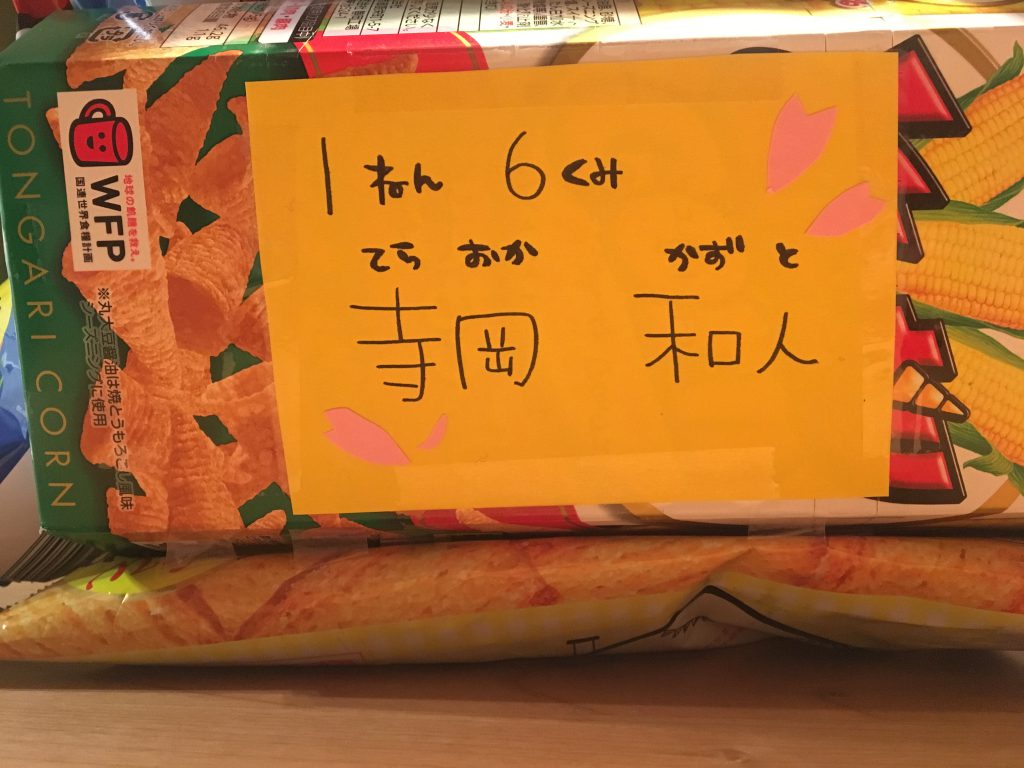 1ねん 6くみ
てら おか かず と
寺岡 和人
TONGARI CORN
地球の飢餓を救え。
WFP
国連世界食糧計画
※丸大豆醤油は焼とうもろこし風味
シーズニングに使用